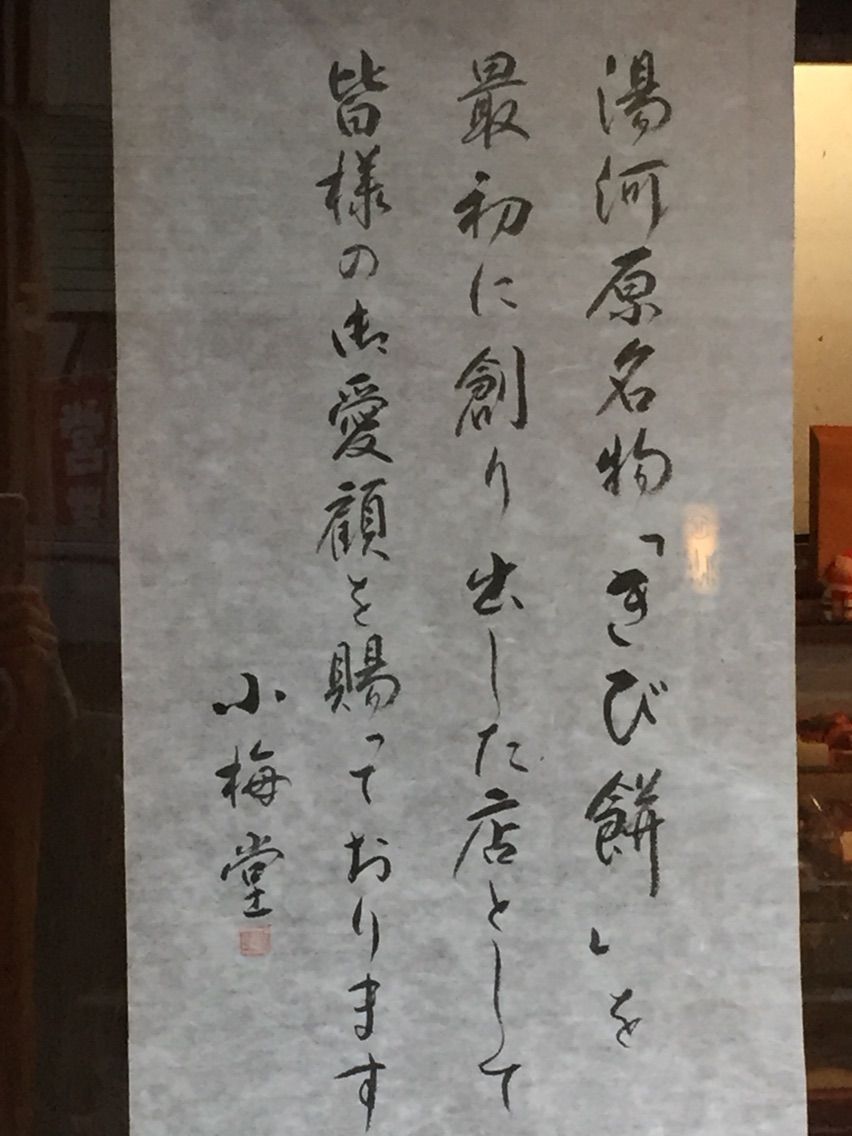 湯河原名物「きび餅」を
最初に創り出した店として
皆様の御愛顧を賜っております
小梅堂